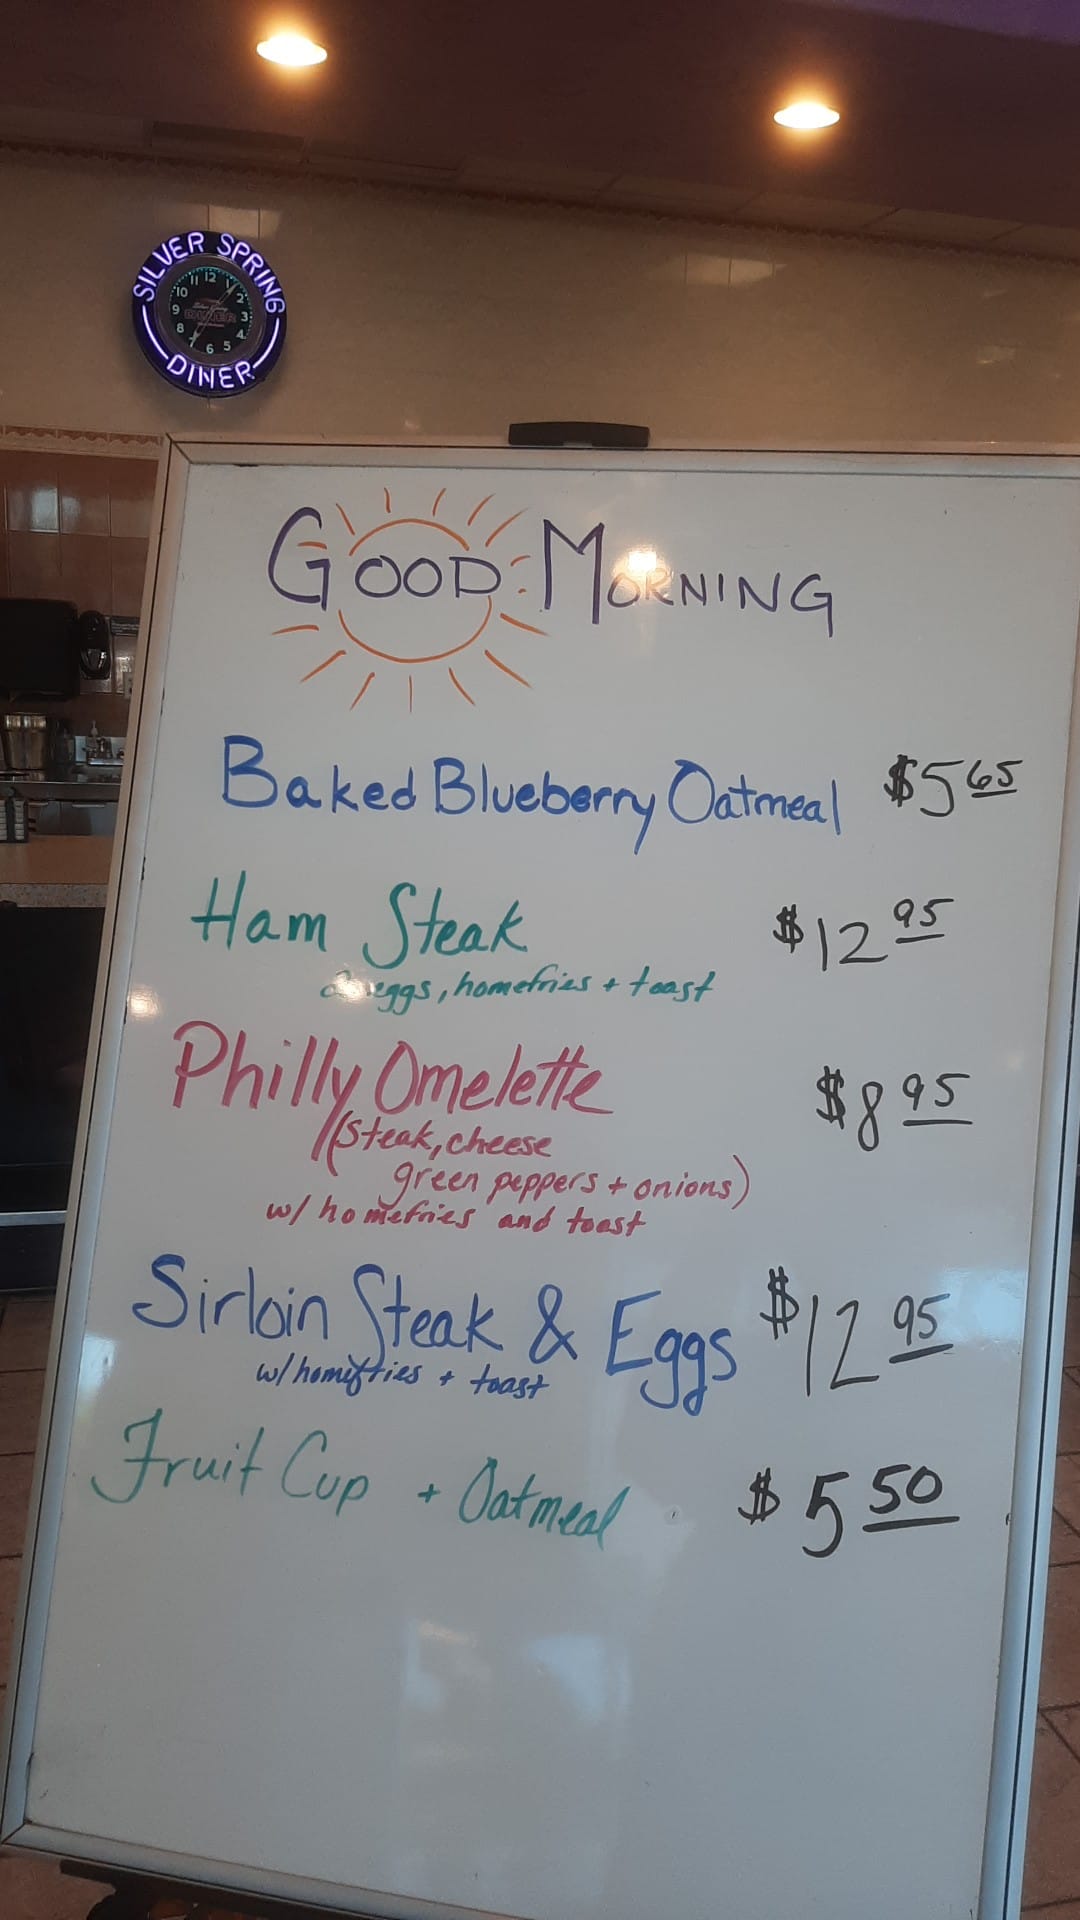 SILVER SPRING
11 12 1
10 2
9 3
8 4
6 5
DINER
DINER
GOOD MORNING
Baked Blueberry Oatmeal $5 65
Ham Steak $12 95
eggs, homefries + toast
Philly Omelette $8 95
(Steak, cheese
green peppers + onions)
w/ homefries and toast
Sirloin Steak & Eggs $12 95
w/ homefries + toast
Fruit Cup + Oatmeal $5 50